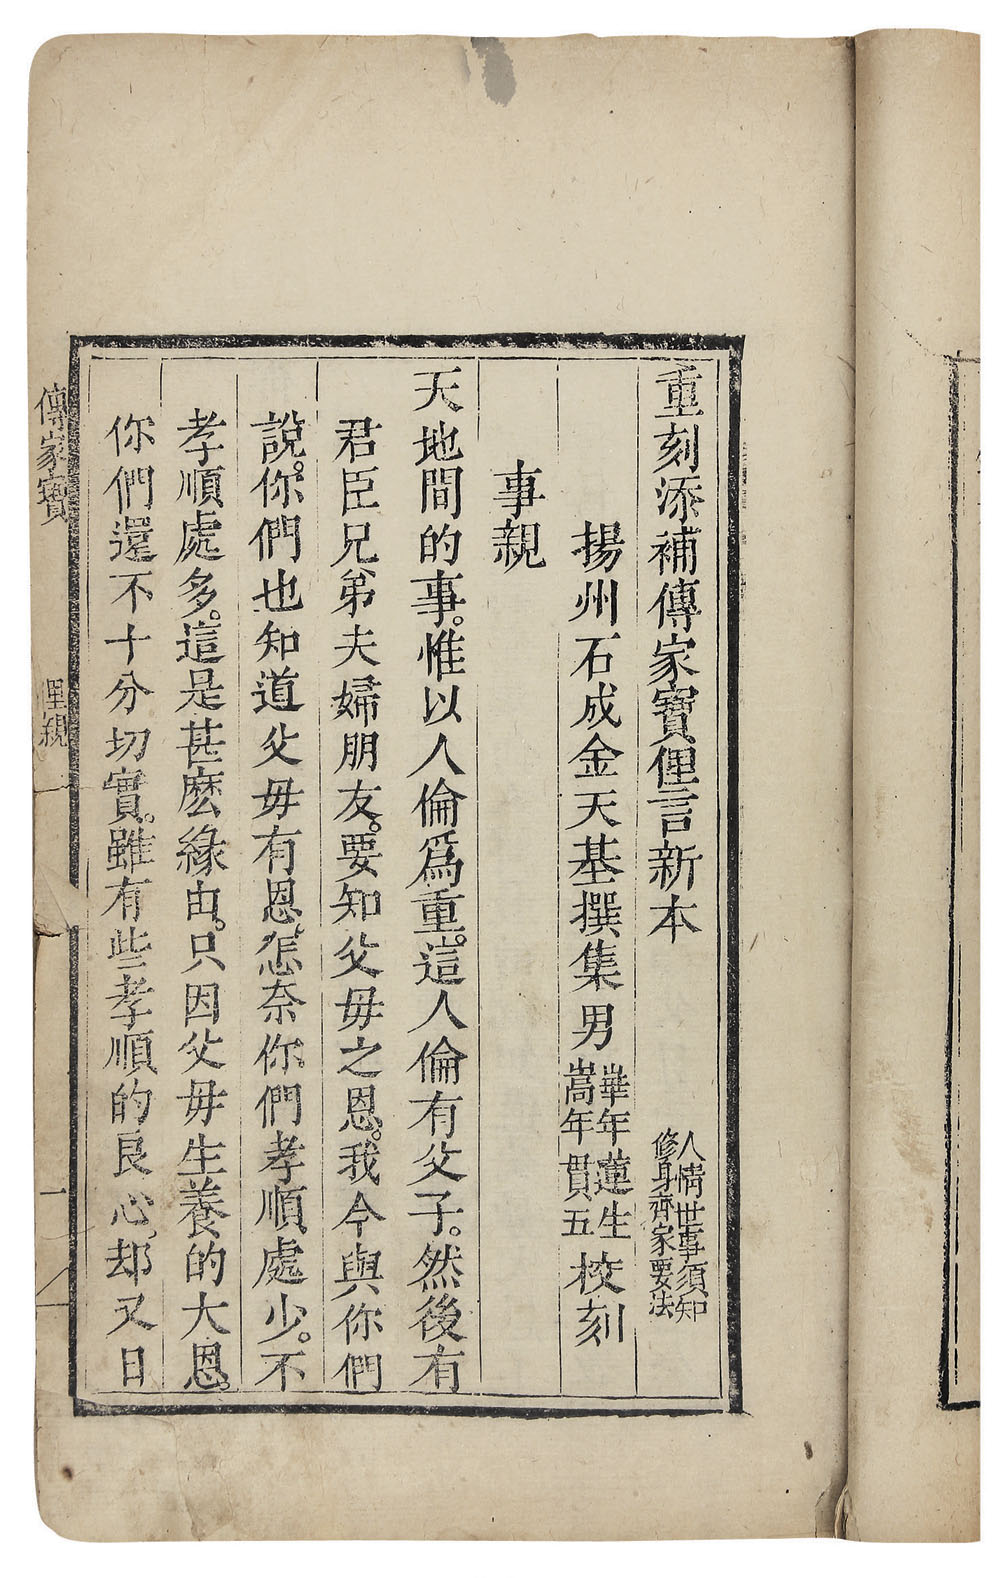 重刻添補傳家寶俚言新本 人情世事須知 修身齊家要法
揚州石成金天基撰集 男 華年蓮生 嵩年貫五 校刻
事親
天地間的事。惟以人倫爲重。這人倫有父子。然後有
君臣兄弟夫婦朋友。要知父母之恩。我今與你們
說。你們也知道父母有恩。怎奈你們孝順處少。不
孝順處多。這是甚麽緣由。只因父母生養的大恩。
你們還不十分切實。雖有些孝順的良心。却又日
傳家寶
俚親
一